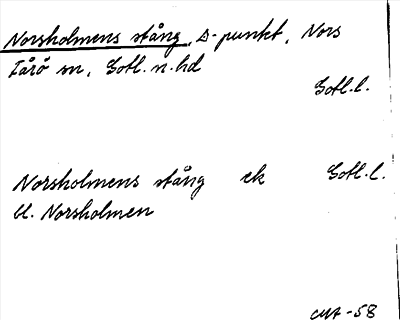 Norsholmens stång, Δ-punkt, Nors
Fårö sn, Gotl. n. hd
Gotl. l.
Norsholmens stång ek Gotl. l.
bl. Norsholmen
-58